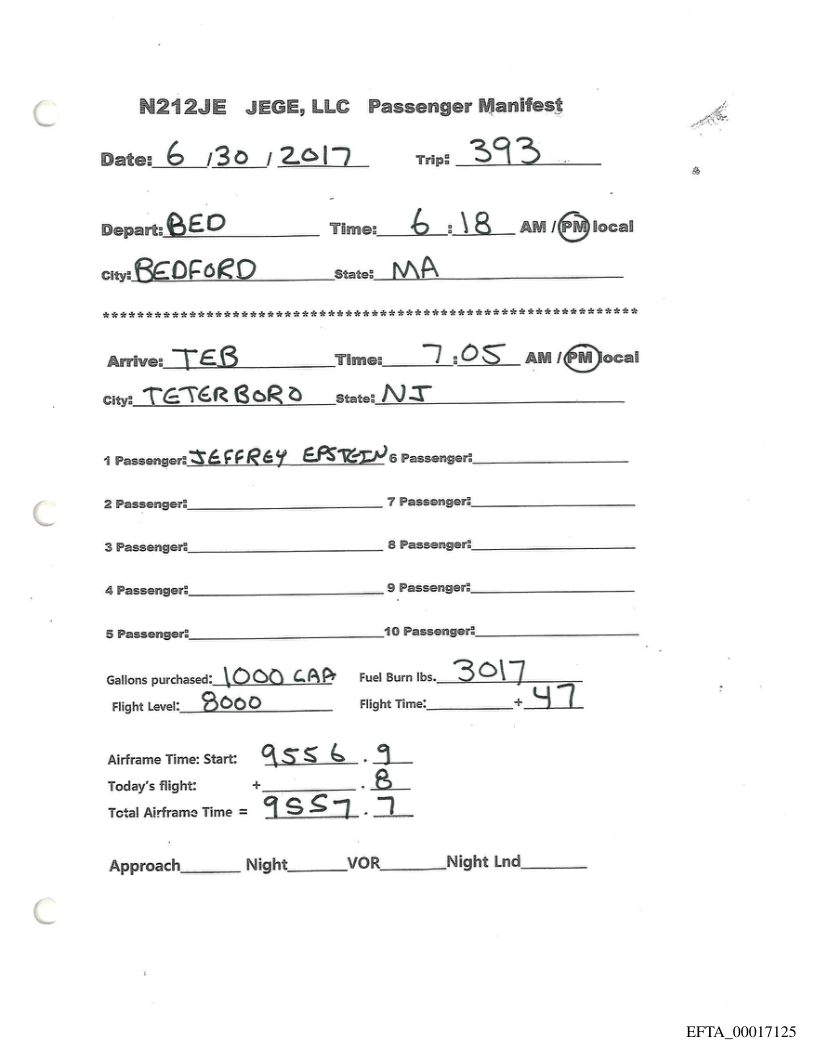 N212JE JEGE, LLC Passenger Manifest
Date: 6 / 30 / 2017 Trip: 393
Depart: BED Time: 6 : 18 AM / PM local
City: BEDFORD State: MA
**************************************************************
Arrive: TEB Time: 7 : 05 AM / PM local
City: TETERBORO State: NJ
1 Passenger: JEFFREY EPSTEIN 6 Passenger:
2 Passenger: 7 Passenger:
3 Passenger: 8 Passenger:
4 Passenger: 9 Passenger:
5 Passenger: 10 Passenger:
Gallons purchased: 1000 GAA Fuel Burn lbs. 3017
Flight Level: 8000 Flight Time: + 47
Airframe Time: Start: 9556 . 9
Today's flight: + . 8
Total Airframe Time = 9557 . 7
Approach Night VOR Night Lnd
EFTA_00017125